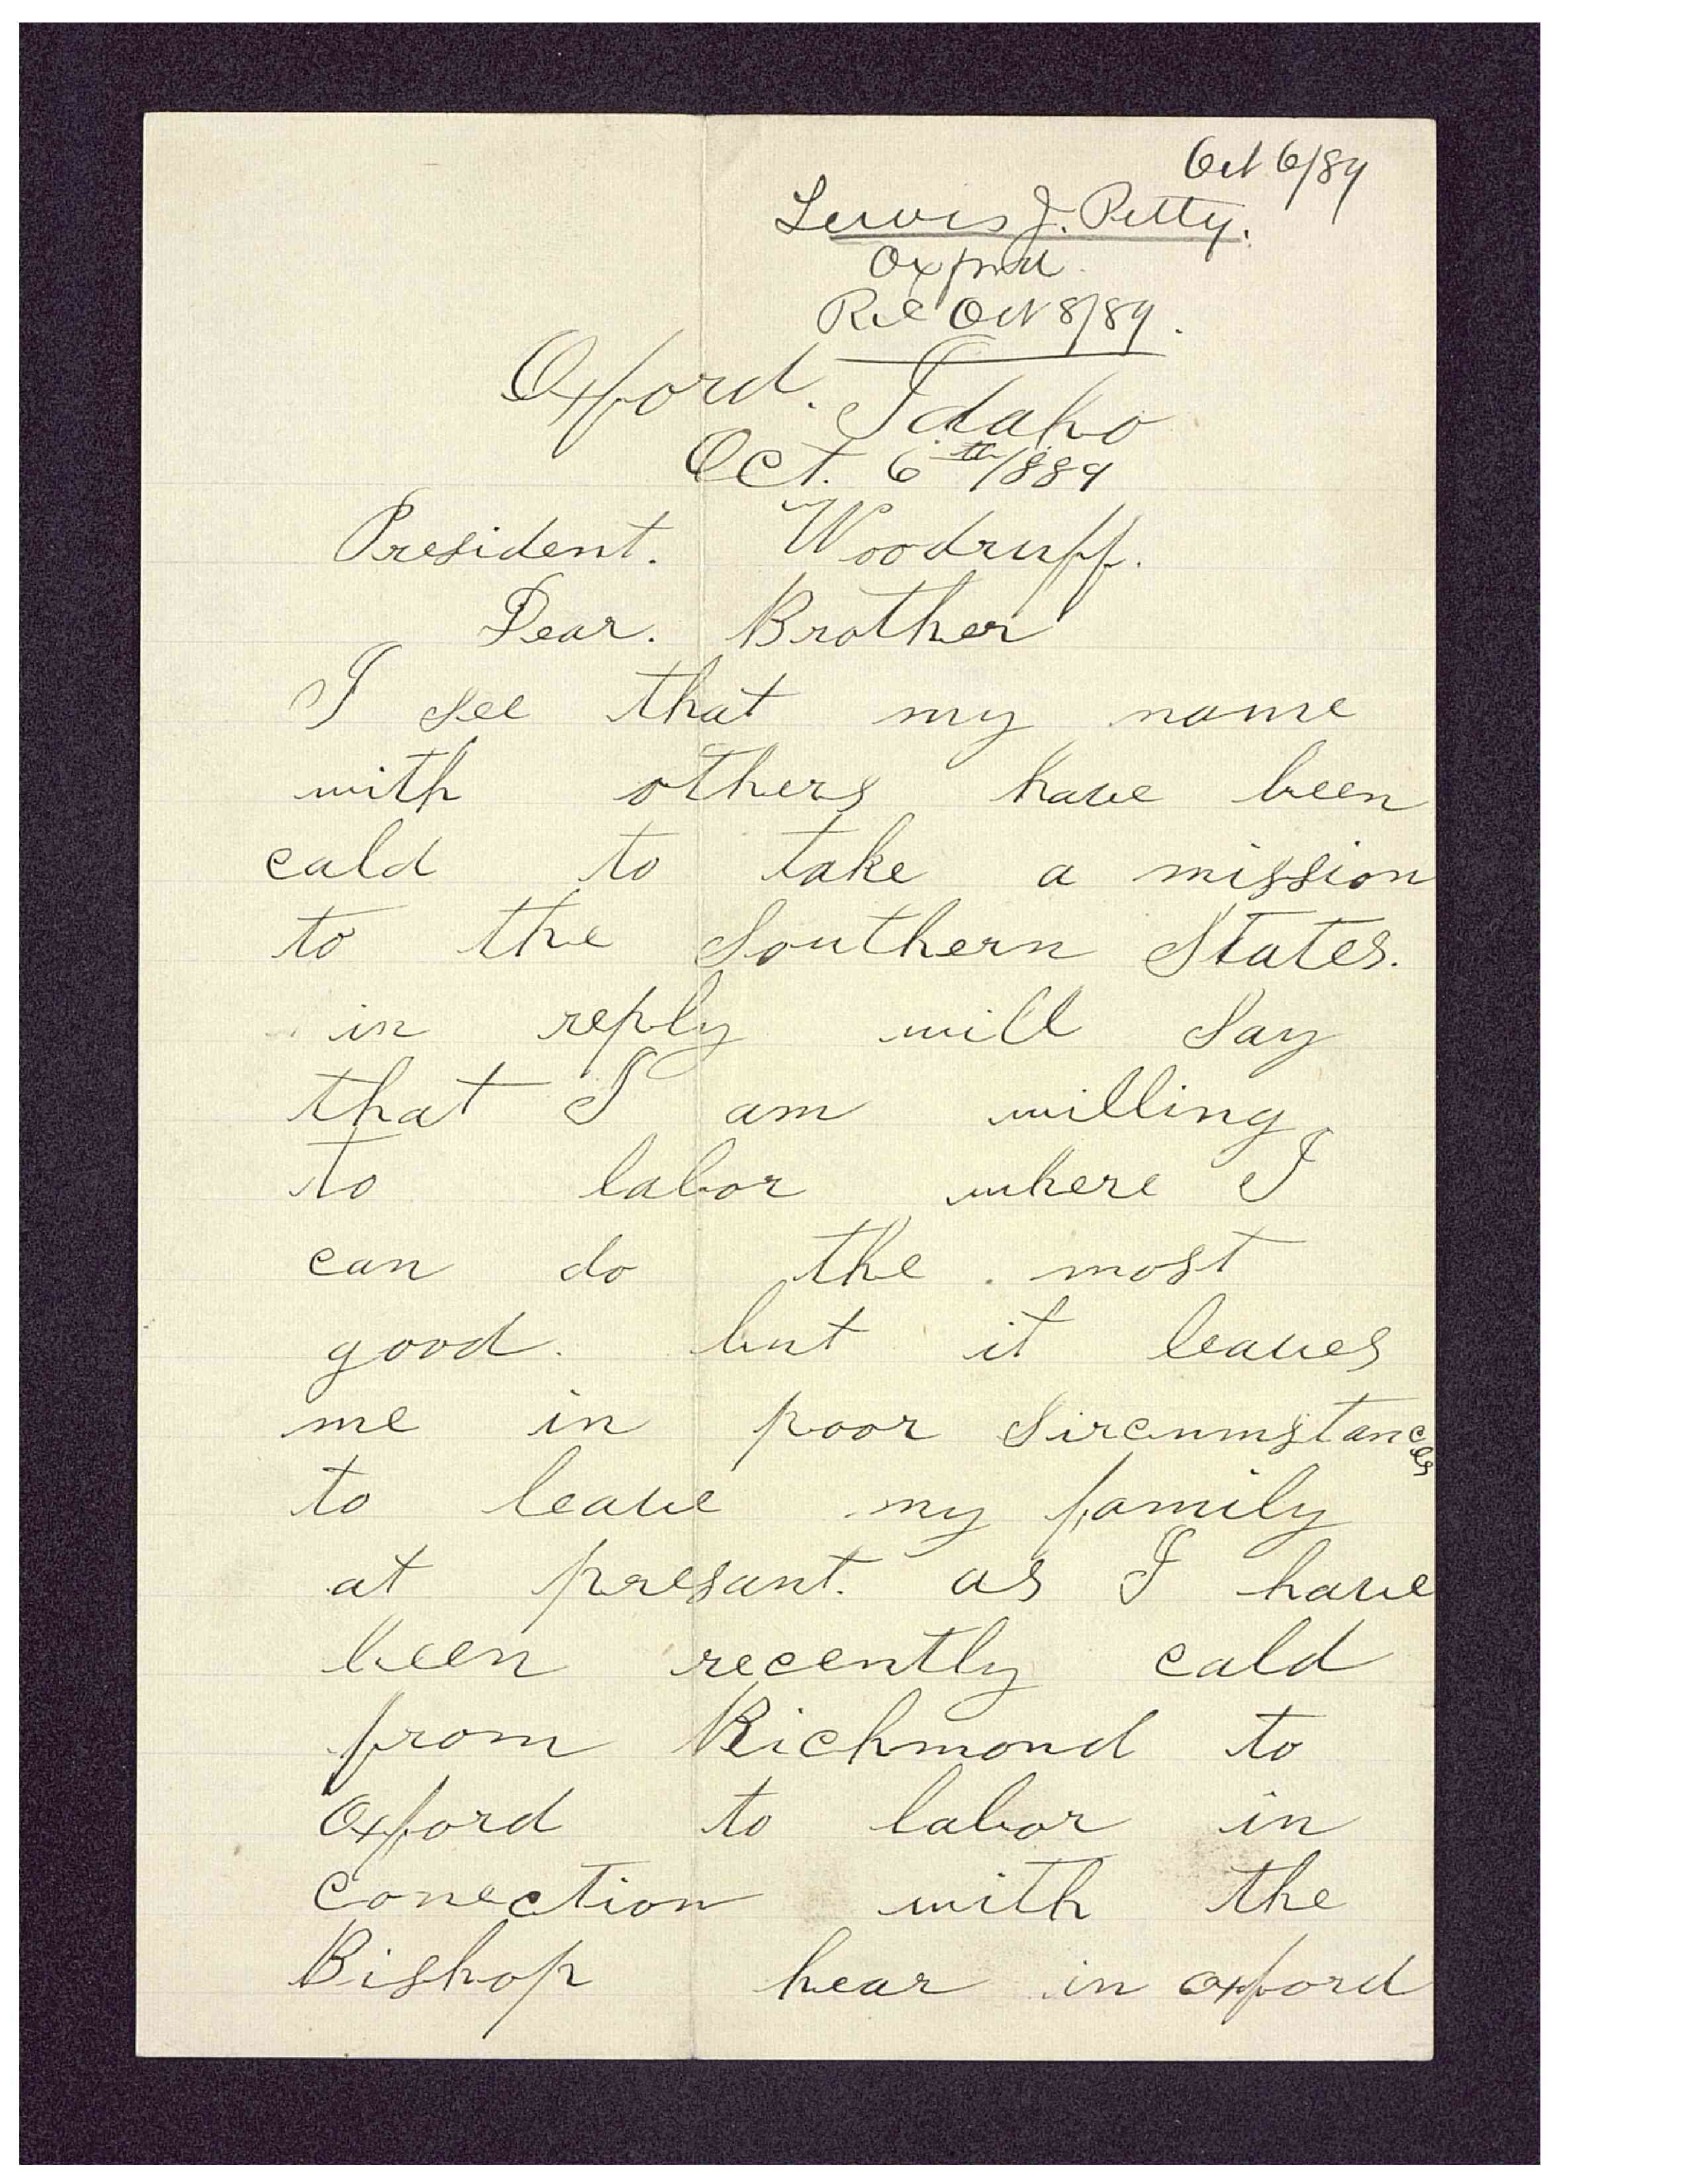 Oct 6/89
Lewis J. Petty.
Oxford
Rec Oct 8/89.
Oxford. Idaho
Oct. 6th/1889
President. Woodruff.
Dear. Brother
I see that my name
with others have been
cald to take a mission
to the Southern States.
in reply will Say
that I am willing
to labor where I
can do the most
good. but it leaves
me in poor Sircumstances
to leave my family
at presant. as I have
been recently cald
from Richmond to
Oxford to labor in
Conection with the
Bishop hear in oxford